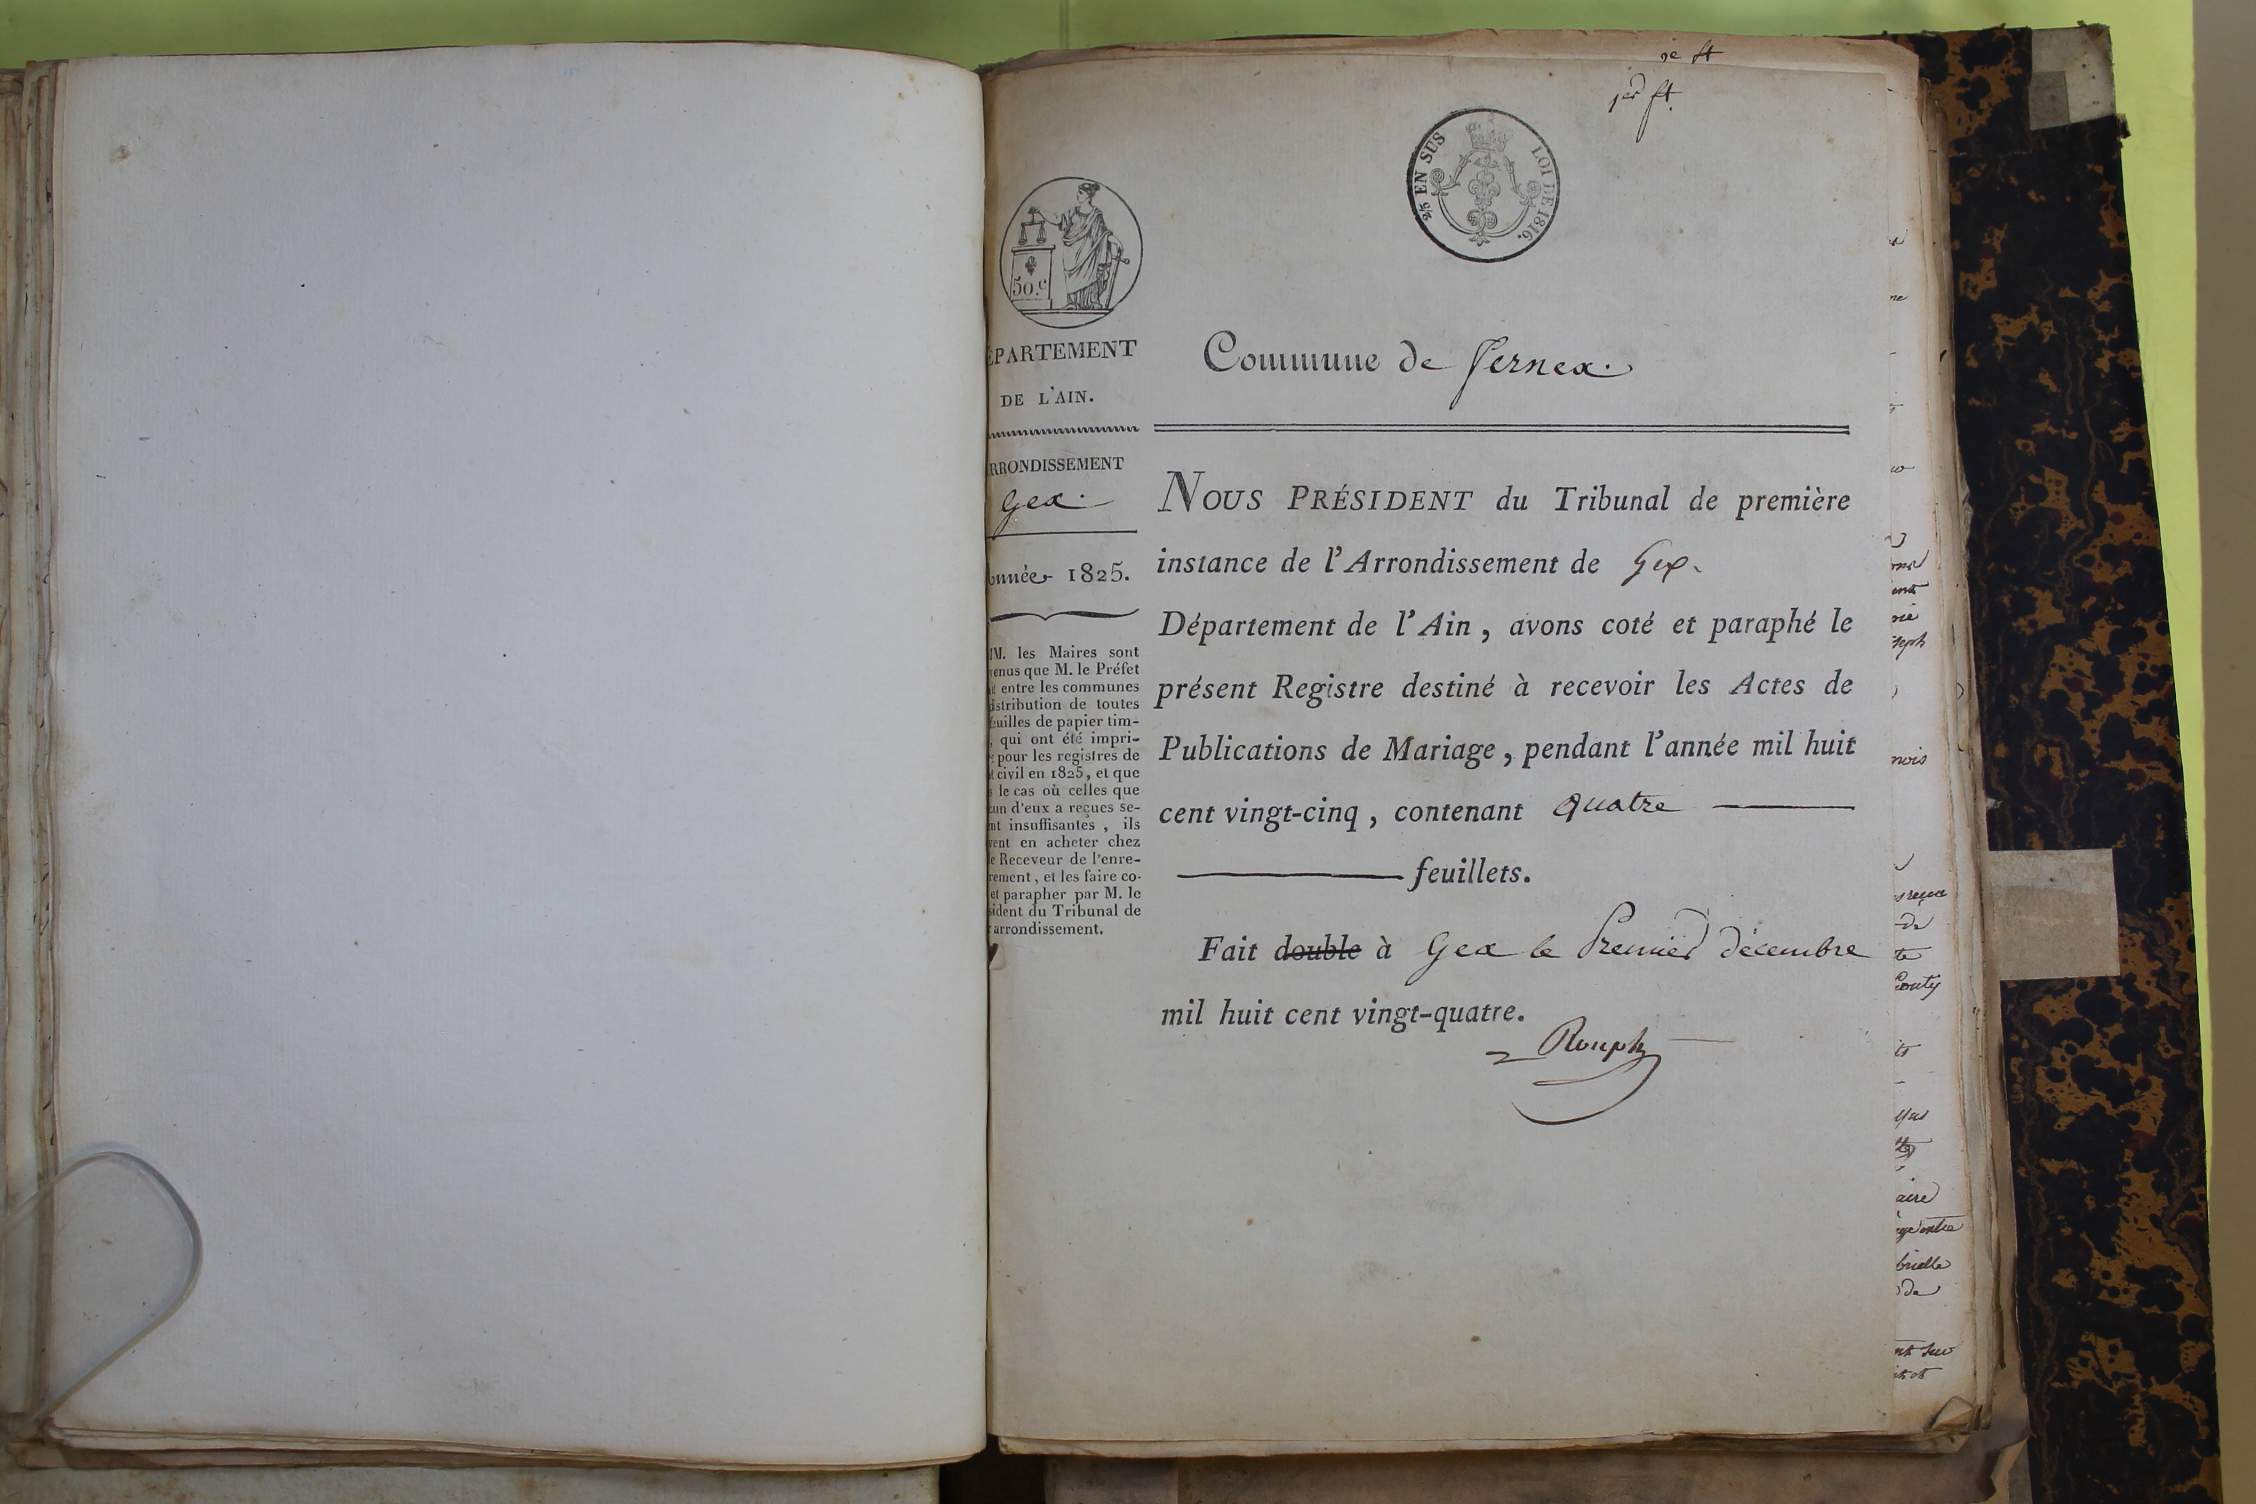 1er ft.
2/5 EN SUS
LOI DE 1816.
50.c
ÉPARTEMENT
DE L'AIN.
RRONDISSEMENT
Gex.
nnée 1825.
M. les Maires sont
enus que M. le Préfet
entre les communes
istribution de toutes
euilles de papier tim-
, qui ont été impri-
pour les registres de
civil en 1825, et que
le cas où celles que
un d'eux a reçues se-
nt insuffisantes, ils
vent en acheter chez
e Receveur de l'enre-
rement, et les faire co-
et parapher par M. le
sident du Tribunal de
arrondissement.
Commune de Fernex.
NOUS PRÉSIDENT du Tribunal de première
instance de l'Arrondissement de Gex.
Département de l'Ain, avons coté et paraphé le
présent Registre destiné à recevoir les Actes de
Publications de Mariage, pendant l'année mil huit
cent vingt-cinq, contenant quatre
feuillets.
Fait double à Gex le Premier décembre
mil huit cent vingt-quatre.
Rouph